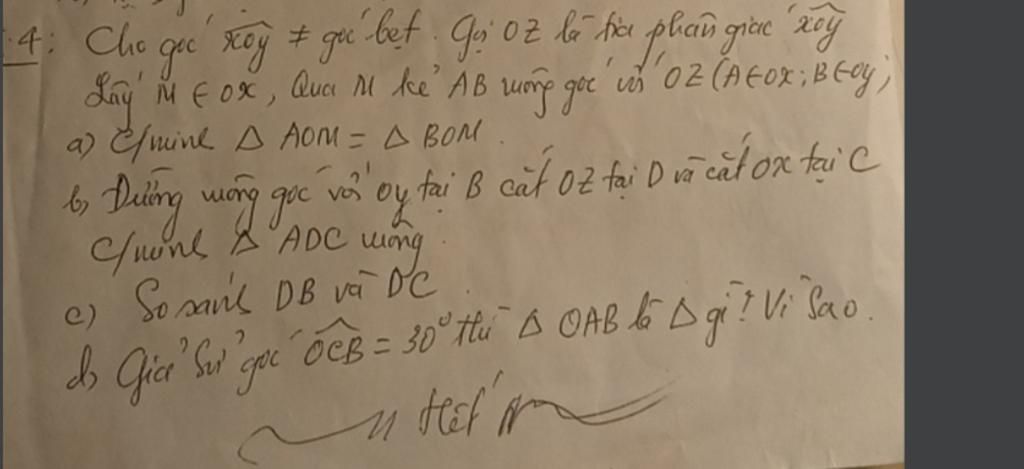 4: Cho góc xôy ≠ góc bẹt. Gọi OZ là tia phân giác xôy
Lấy M ∈ OX, Qua M kẻ AB vuông góc với OZ (A∈OX; B∈Oy)
a) C/minh Δ AOM = Δ BOM.
b, Đường vuông góc với Oy tại B cắt OZ tại D và cắt OX tại C
C/minh Δ ADC vuông.
c) So sánh DB và DC.
d, Giả sử góc OCB = 30° thì Δ OAB là Δ gì? Vì Sao.
Hết